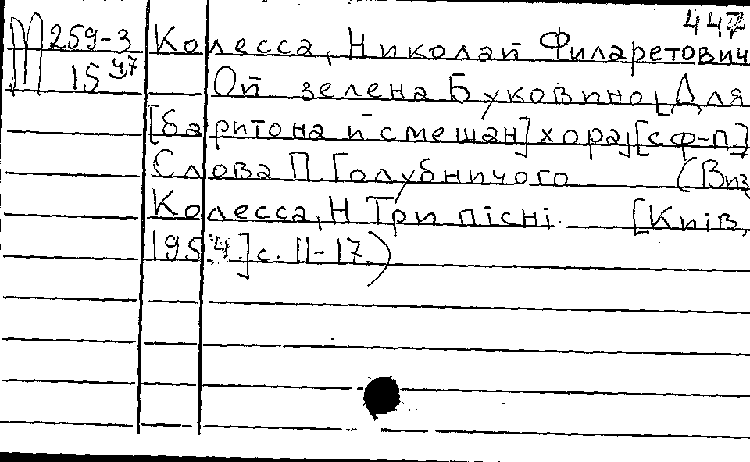 447
М 259-3 Колесса, Николай Филаретович
15 47 Ой зелена Буковино[Для
[баритона и смешан] хора[с ф-п]
Слова П Голубничого (Виз
Колесса, Н Три пісні. [Київ,
1954] с. 11-17.)